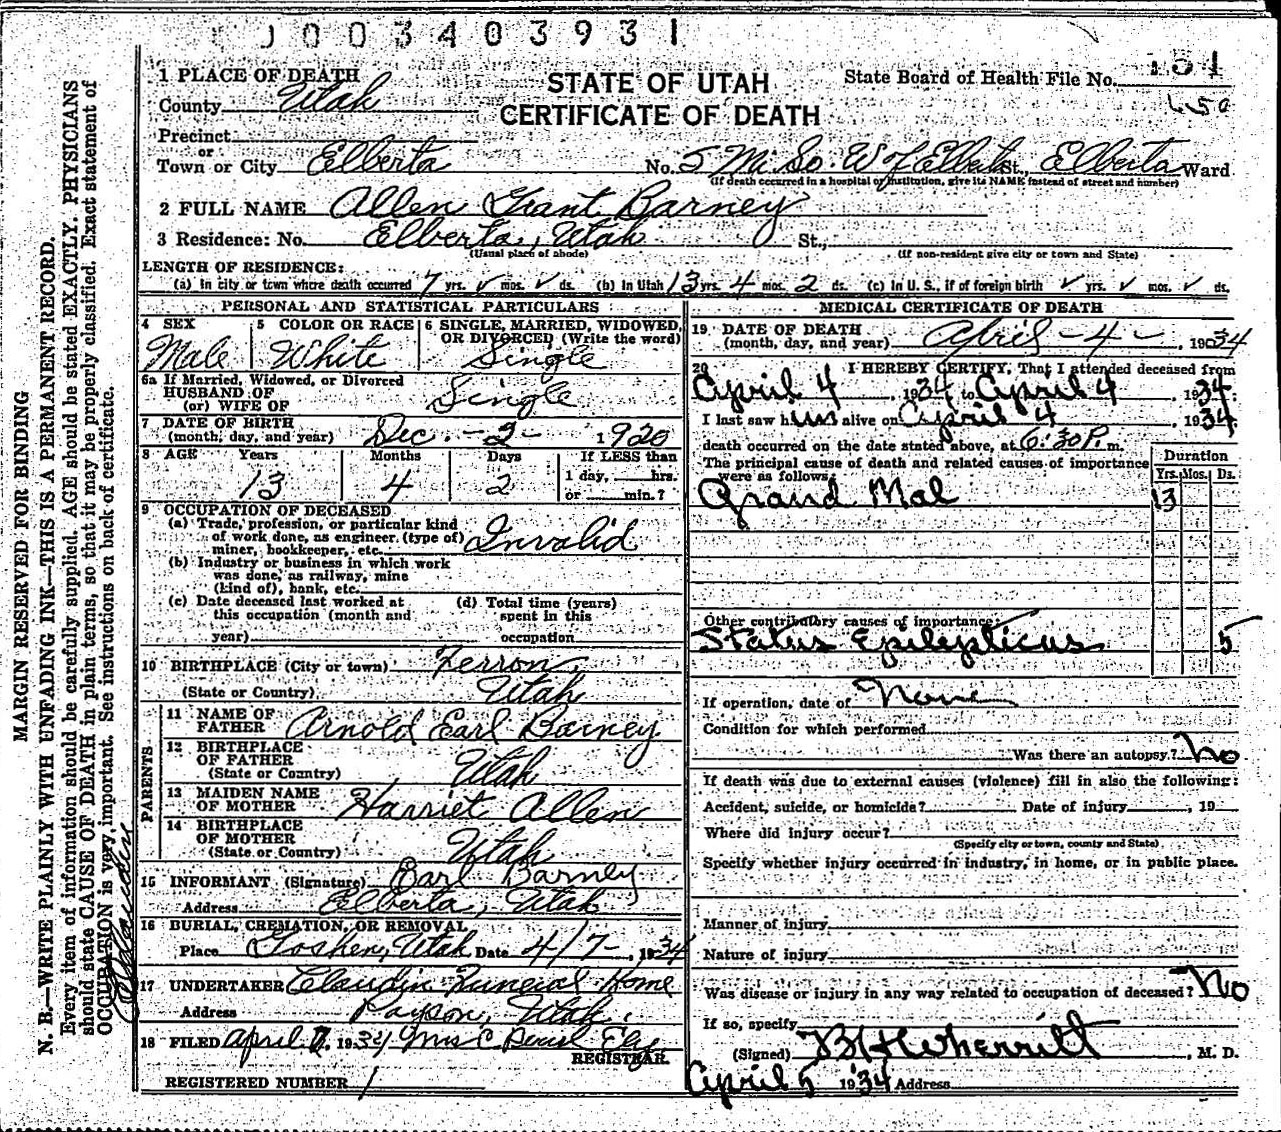 J003403931
1 PLACE OF DEATH
County Utah
STATE OF UTAH
CERTIFICATE OF DEATH
State Board of Health File No. 151
450
Precinct
or
Town or City Elberta No. 5 Mi. So. W of Elberta St., Elberta Ward
(If death occurred in a hospital or institution, give its NAME instead of street and number)
2 FULL NAME Allen Grant Barney
3 Residence: No. Elberta, Utah St.,
(Usual place of abode) (If non-resident give city or town and State)
LENGTH OF RESIDENCE:
(a) In city or town where death occurred 7 yrs. ✓ mos. ✓ ds. (b) In Utah 13 yrs. 4 mos. 2 ds. (c) In U. S., if of foreign birth ✓ yrs. ✓ mos. ✓ ds.
PERSONAL AND STATISTICAL PARTICULARS
4 SEX
Male
5 COLOR OR RACE
White
6 SINGLE, MARRIED, WIDOWED,
OR DIVORCED (Write the word)
Single
6a If Married, Widowed, or Divorced
HUSBAND OF
(or) WIFE OF Single
7 DATE OF BIRTH
(month, day, and year) Dec. - 2 - 1920
8 AGE Years Months Days If LESS than
13 4 2 1 day, hrs.
or min.?
9 OCCUPATION OF DECEASED
(a) Trade, profession, or particular kind
of work done, as engineer (type of)
miner, bookkeeper, etc. Invalid
(b) Industry or business in which work
was done, as railway, mine
(kind of), bank, etc.
(c) Date deceased last worked at
this occupation (month and
year)
(d) Total time (years)
spent in this
occupation
10 BIRTHPLACE (City or town) Ferron,
(State or Country) Utah
PARENTS
11 NAME OF
FATHER Arnold Earl Barney
12 BIRTHPLACE
OF FATHER
(State or Country) Utah
13 MAIDEN NAME
OF MOTHER Harriet Allen
14 BIRTHPLACE
OF MOTHER
(State or Country) Utah
15 INFORMANT (Signature) Earl Barney
Address Elberta, Utah
16 BURIAL, CREMATION, OR REMOVAL
Place Goshen, Utah Date 4/7 - , 1934
17 UNDERTAKER Claudin Funeral Home
Address Payson, Utah.
18 FILED April 7, 1934 Mrs C
REGISTRAR.
REGISTERED NUMBER 1
MEDICAL CERTIFICATE OF DEATH
19 DATE OF DEATH
(month, day, and year) April - 4 - , 1934
20 I HEREBY CERTIFY, That I attended deceased from
April 4, 1934 to April 4 1934:
I last saw him alive on April 4, 1934.
death occurred on the date stated above, at 6:30 P. m.
The principal cause of death and related causes of importance
were as follows:
Duration
Yrs. Mos. Ds.
Grand Mal 13
Other contributory causes of importance:
Status Epilepticus 5
If operation, date of None
Condition for which performed
Was there an autopsy? No
If death was due to external causes (violence) fill in also the following:
Accident, suicide, or homicide? Date of injury , 19
Where did injury occur?
(Specify city or town, county and State)
Specify whether injury occurred in industry, in home, or in public place.
Manner of injury
Nature of injury
Was disease or injury in any way related to occupation of deceased? No
If so, specify
(Signed) , M. D.
April 5 1934 Address
MARGIN RESERVED FOR BINDING
N. B.—WRITE PLAINLY WITH UNFADING INK—THIS IS A PERMANENT RECORD.
Every item of information should be carefully supplied. AGE should be stated EXACTLY. PHYSICIANS
should state CAUSE OF DEATH in plain terms, so that it may be properly classified. Exact statement of
OCCUPATION is very important. See instructions on back of certificate.
Claudin